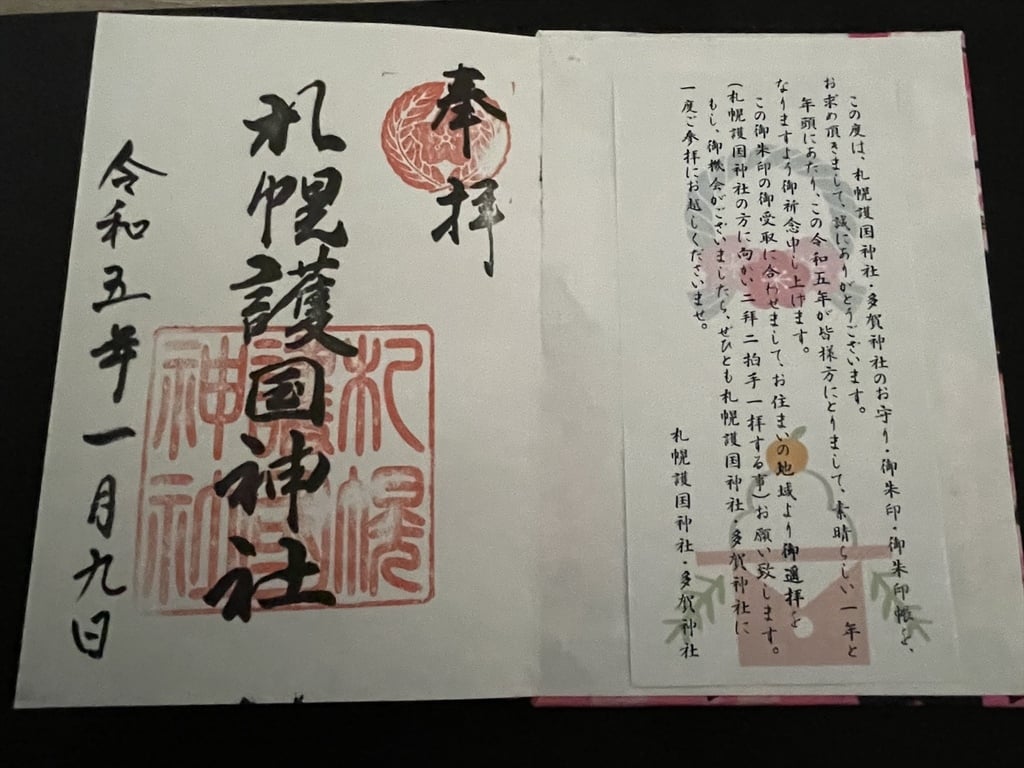 この度は、札幌護国神社・多賀神社のお守り・御朱印・御朱印帳を、
お求め頂きまして、誠にありがとうございます。
年頭にあたり、この令和五年が皆様方にとりまして、素晴らしい一年と
なりますよう御祈念申し上げます。
この御朱印の御受取に合わせまして、お住まいの地域より御遥拝を
(札幌護国神社の方に向かい二拝二拍手一拝する事)お願い致します。
もし、御機会がございましたら、ぜひとも札幌護国神社・多賀神社に
一度ご参拝にお越しくださいませ。
札幌護国神社・多賀神社
奉拝
札幌護国神社
札幌
護国
神社
令和五年一月九日